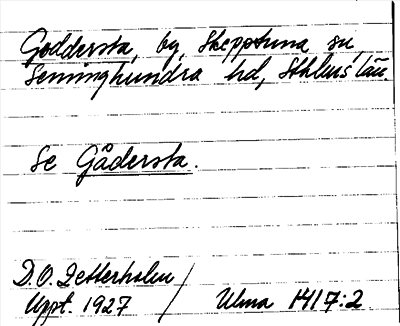 Goddersta, by, Skepptuna sn,
Seminghundra hd, Sthlms län.
Se Gådersta.
D.O. Zetterholm
Uppt. 1927 / Ulma 1417:2